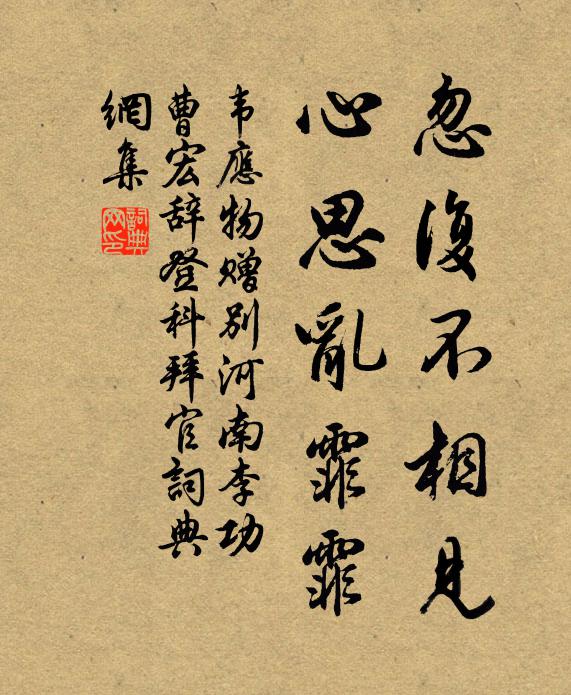 忽復不相見
心思亂霏霏
韦應物贈别河南李功
曹宏辞登科拜官詞典
網集
詞典
网印